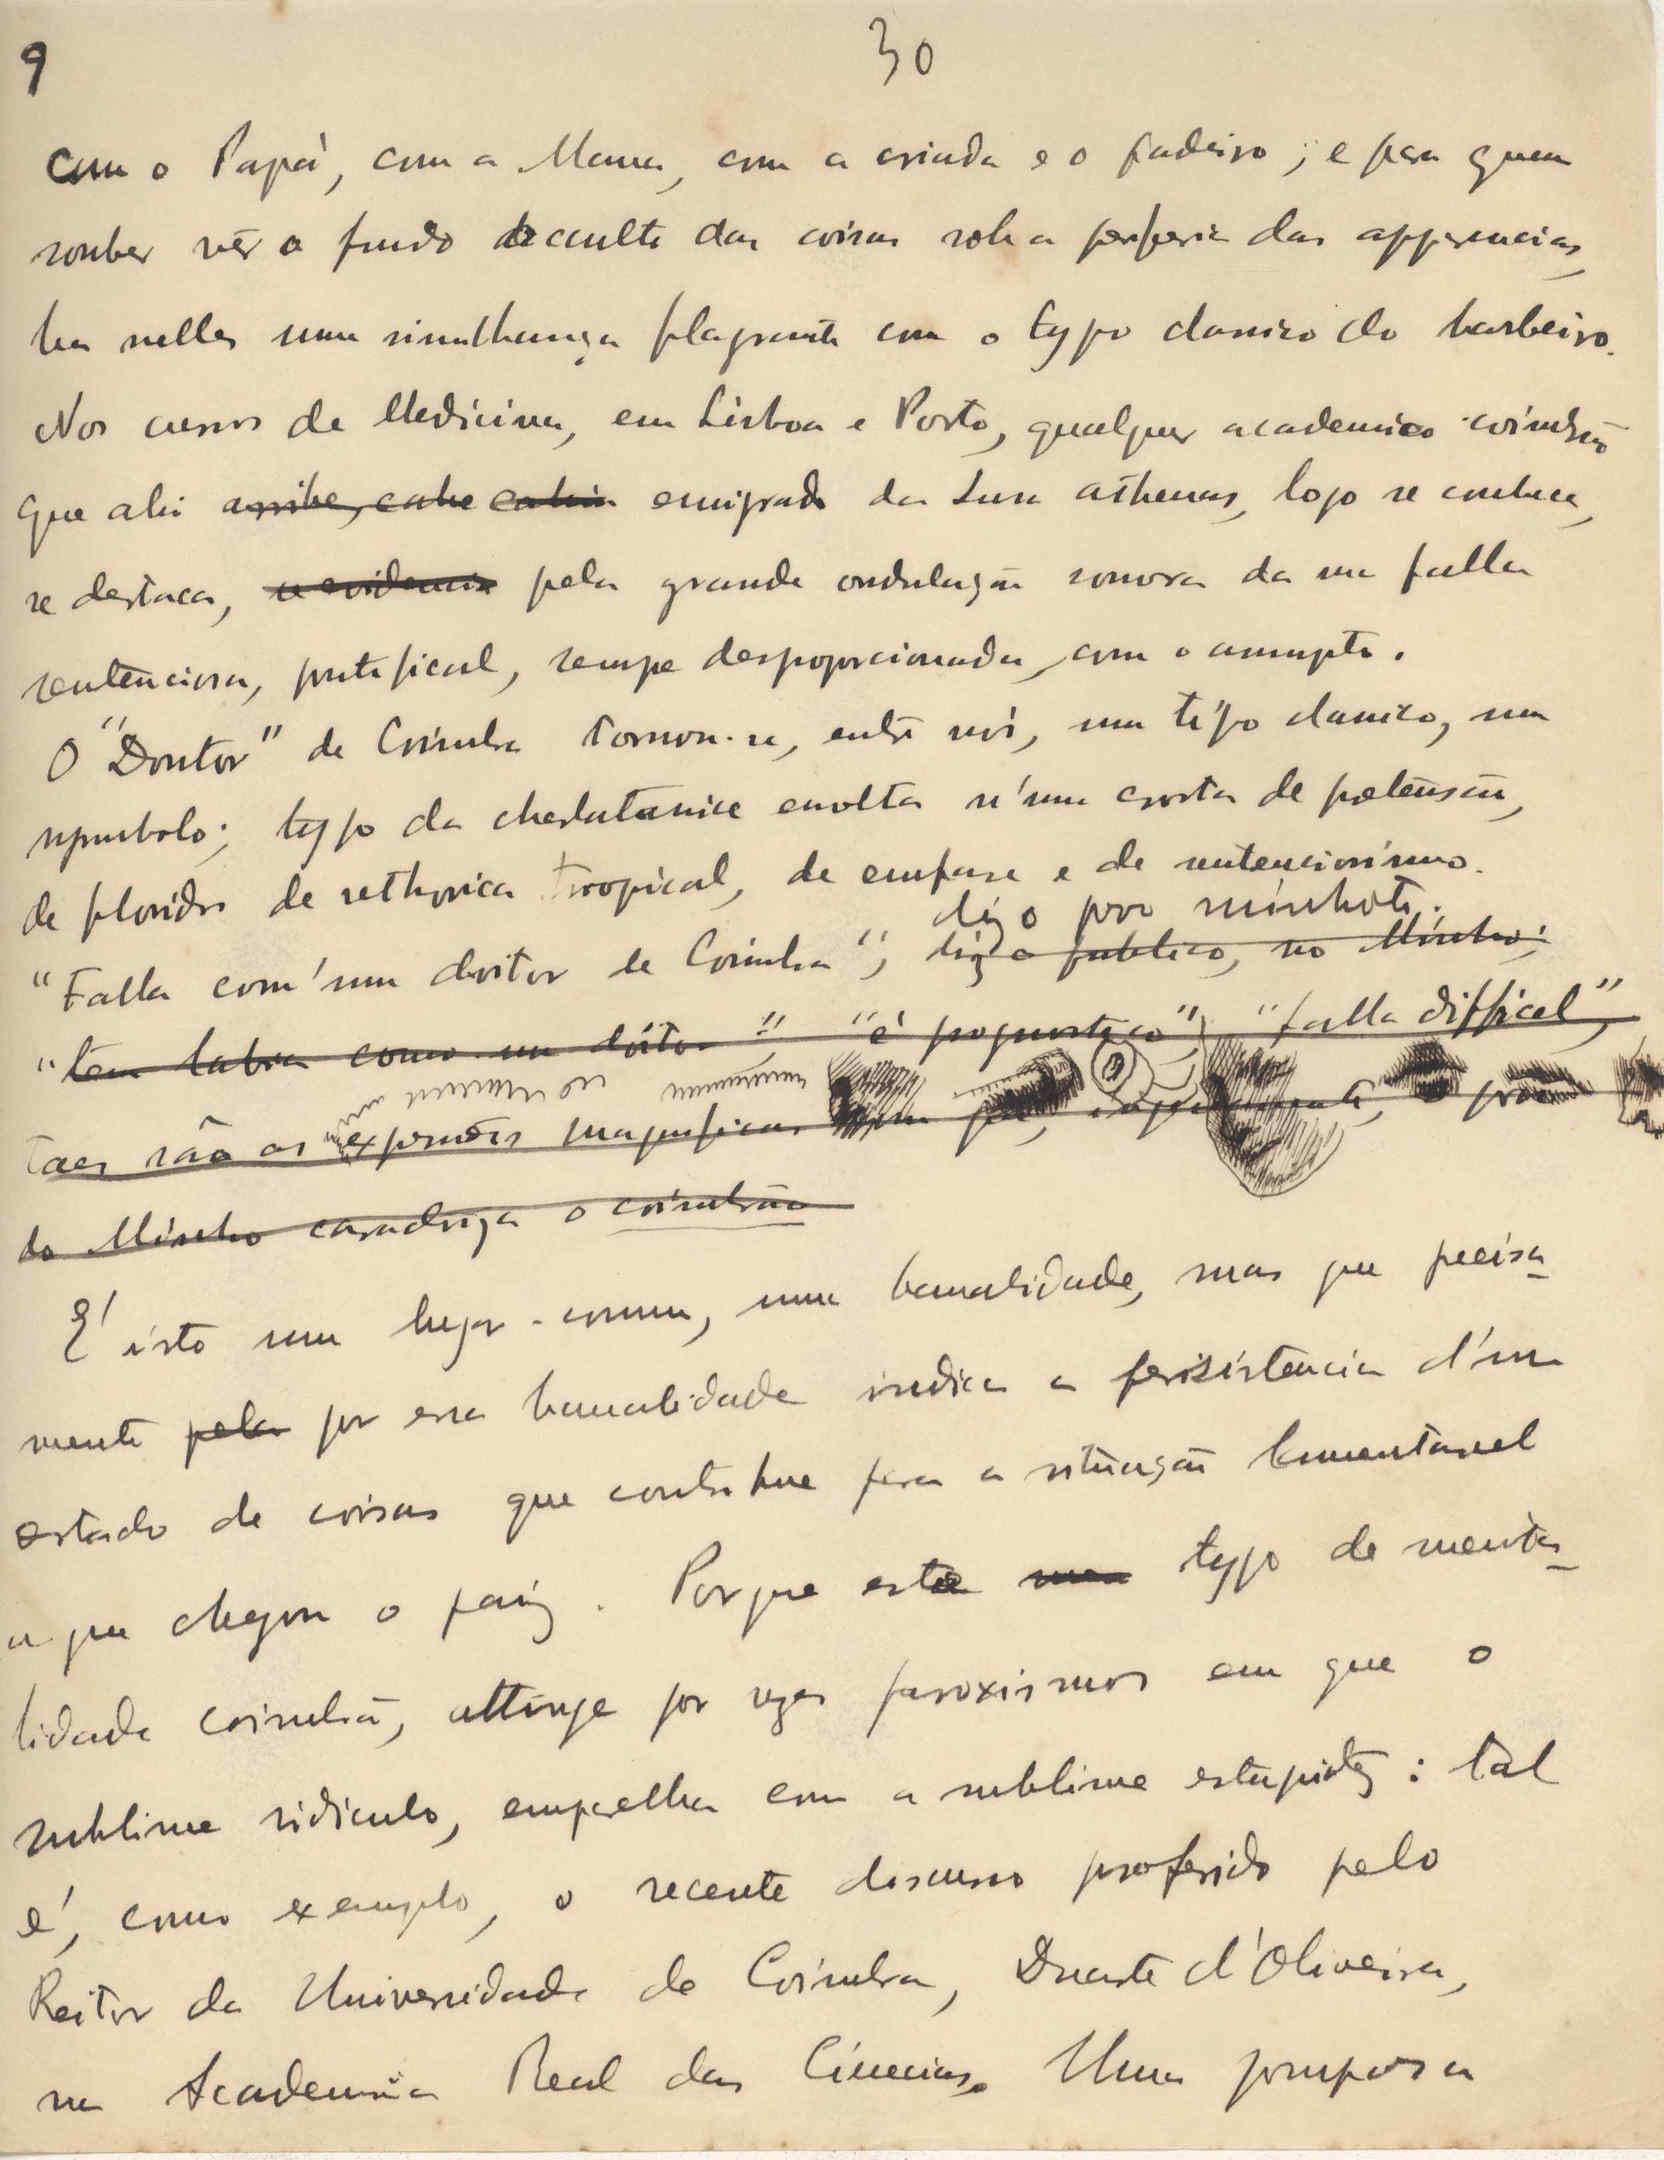 9
30
com o Papá, com a Mamã, com a criada e o padeiro; e para quem
souber vêr o fundo occulto das coisas sob a periferia das apparencias,
ha nelles uma similhança flagrante com o typo classico do barbeiro.
Nos cursos de Medicina, em Lisboa e Porto, qualquer academico coimbrão
que ali arribe, cahe cahia emigrado da Lusa athenas, logo se conhece,
se destaca, se evidencia pela grande ondulação sonora da sua falla
sentenciosa, pontifical, sempre desproporcionada com o assumpto.
O "Doutor" de Coimbra tornou-se, entre nós, um tipo classico, um
symbolo; typo da charlatanice envolta n'uma crosta de pretensão,
de floridos de rethorica tropical, de emfase e de sentenciosismo.
diz o povo minhoto.
"Falla com'um doitor de Coimbra", diz o publico, no Minho;
"tem labia como um dôitor", "é prognostico", "falla difficel",
taes são as expressões magnificas com que,
do Minho caracteriza o coimbrão
É isto um lugar-comum, uma banalidade, mas que precisa-
mente pela por essa banalidade indica a persistencia d'um
estado de coisas que contribue para a situação lamentavel
a que chegou o paiz. Porque este typo de menta-
lidade coimbrã, attinge por vezes paroxismos em que o
sublime ridiculo, emparelha com a sublime estupidez: tal
é, como exemplo, o recente discurso proferido pelo
Reitor da Universidade de Coimbra, Duarte d'Oliveira,
na Academia Real das Ciencias. Uma pomposa